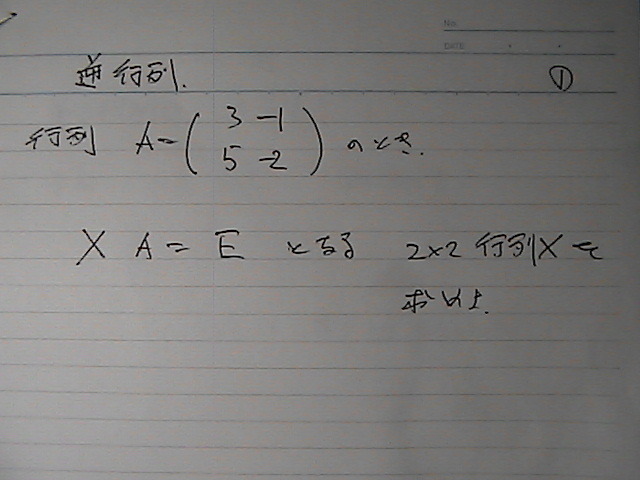 No.
DATE
逆行列. ①
行列 A=( 3 -1
5 -2 ) のとき.
X A = E となる 2×2 行列Xを
求めよ.